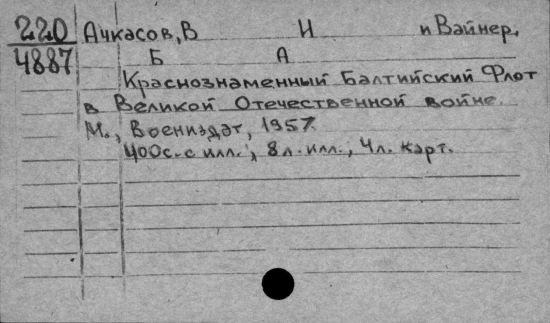 220 Ачкасов, В И и Вайнер,
4887 Б А
Краснознаменный Балтийский Флот
в Великой Отечественной войне.
М., Воениздат, 1957.
400с. с илл., 8 л. илл., 4л. карт.